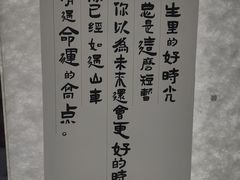 生里的好時光
总是這麼短暫
你以為未來還會更好的時
你已經如過山車
過命運的高点。